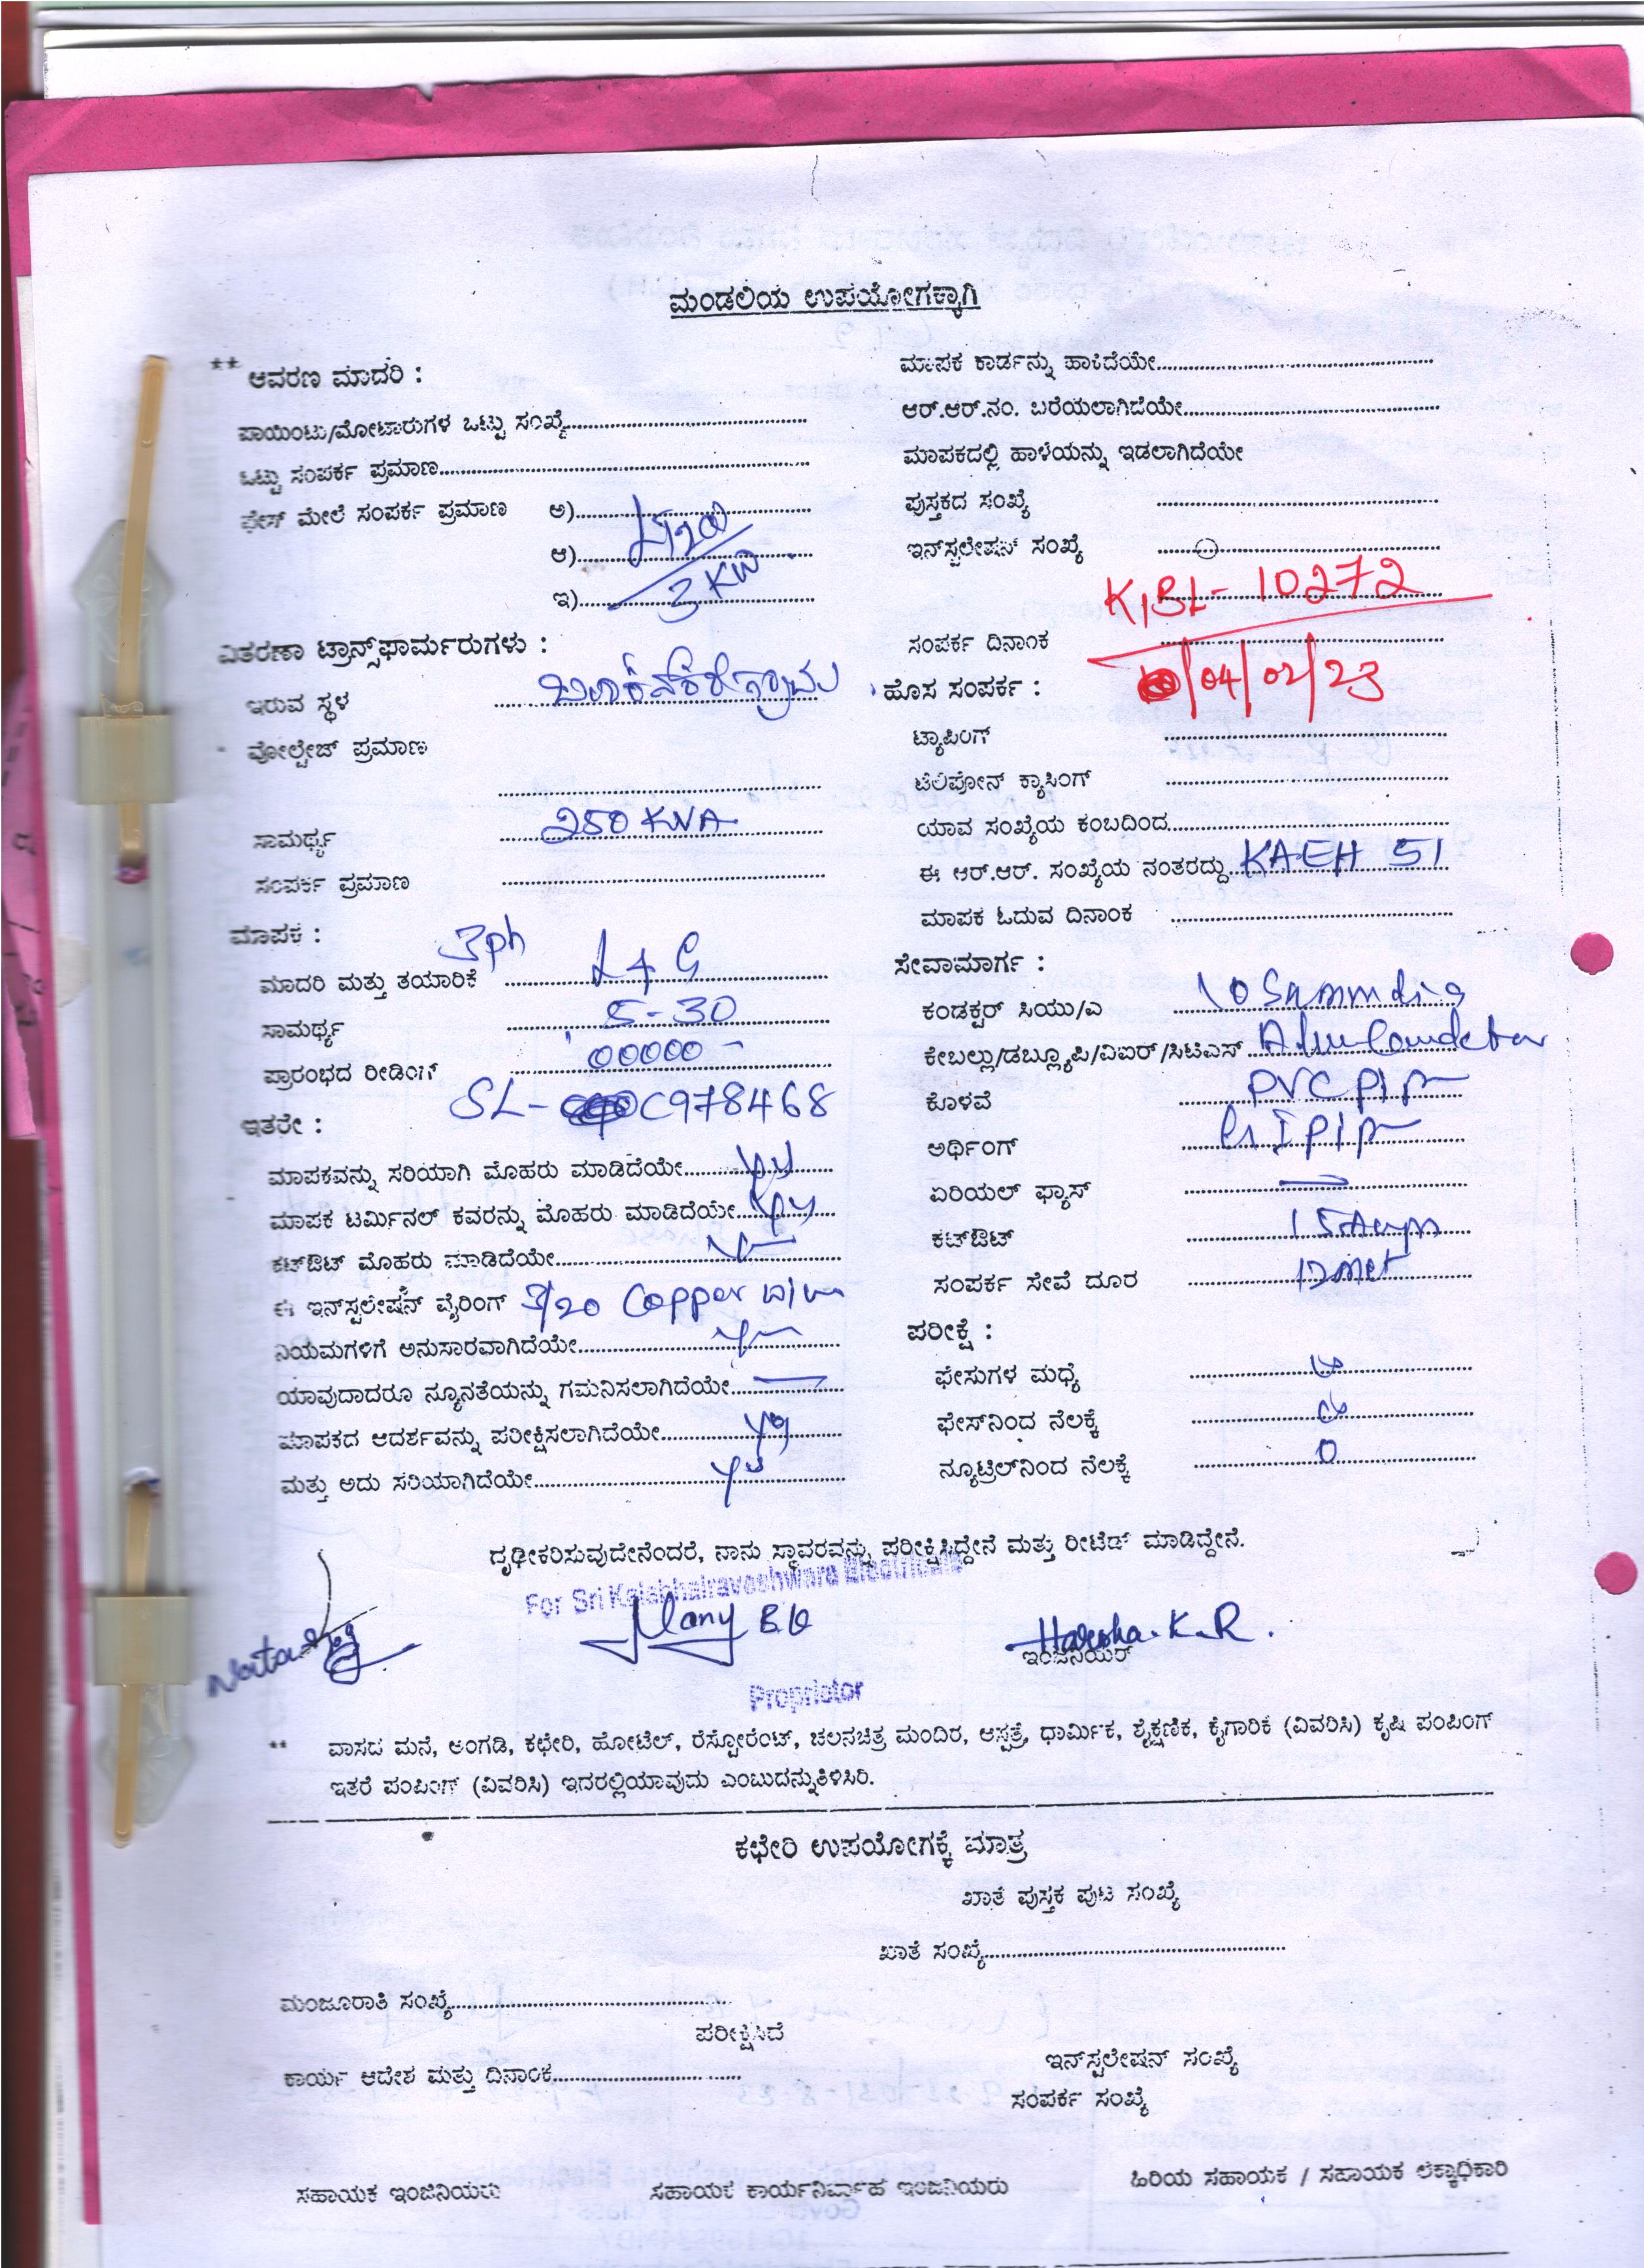 ಮಂಡಲಿಯ ಉಪಯೋಗಕ್ಕಾಗಿ
** ಆವರಣ ಮಾದರಿ :
ಪಾಯಿಂಟು/ಮೋಟಾರುಗಳ ಒಟ್ಟು ಸಂಖ್ಯೆ
ಒಟ್ಟು ಸಂಪರ್ಕ ಪ್ರಮಾಣ
ಫೇಸ್ ಮೇಲೆ ಸಂಪರ್ಕ ಪ್ರಮಾಣ ಅ)
ಆ)
ಇ) 3 KW
ವಿತರಣಾ ಟ್ರಾನ್ಸ್‌ಫಾರ್ಮರುಗಳು :
ಇರುವ ಸ್ಥಳ
ವೋಲ್ಟೇಜ್ ಪ್ರಮಾಣ
ಸಾಮರ್ಥ್ಯ 250 KVA
ಸಂಪರ್ಕ ಪ್ರಮಾಣ
ಮಾಪಕ : 3ph
ಮಾದರಿ ಮತ್ತು ತಯಾರಿಕೆ L+G
ಸಾಮರ್ಥ್ಯ 5-30
ಪ್ರಾರಂಭದ ರೀಡಿಂಗ್ 00000
SL- C978468
ಇತರೇ :
ಮಾಪಕವನ್ನು ಸರಿಯಾಗಿ ಮೊಹರು ಮಾಡಿದೆಯೇ
ಮಾಪಕ ಟರ್ಮಿನಲ್ ಕವರನ್ನು ಮೊಹರು ಮಾಡಿದೆಯೇ
ಕಟ್‌ಔಟ್ ಮೊಹರು ಮಾಡಿದೆಯೇ
ಈ ಇನ್‌ಸ್ಟಲೇಷನ್ ವೈರಿಂಗ್ 3/20 Copper
ನಿಯಮಗಳಿಗೆ ಅನುಸಾರವಾಗಿದೆಯೇ
ಯಾವುದಾದರೂ ನ್ಯೂನತೆಯನ್ನು ಗಮನಿಸಲಾಗಿದೆಯೇ
ಮಾಪಕದ ಆದರ್ಶವನ್ನು ಪರೀಕ್ಷಿಸಲಾಗಿದೆಯೇ
ಮತ್ತು ಅದು ಸರಿಯಾಗಿದೆಯೇ
ಮಾಪಕ ಕಾರ್ಡನ್ನು ಹಾಕಿದೆಯೇ
ಆರ್.ಆರ್.ನಂ. ಬರೆಯಲಾಗಿದೆಯೇ
ಮಾಪಕದಲ್ಲಿ ಹಾಳೆಯನ್ನು ಇಡಲಾಗಿದೆಯೇ
ಪುಸ್ತಕದ ಸಂಖ್ಯೆ
ಇನ್‌ಸ್ಟಲೇಷನ್ ಸಂಖ್ಯೆ
K,BL- 10272
ಸಂಪರ್ಕ ದಿನಾಂಕ
ಹೊಸ ಸಂಪರ್ಕ : 04/02/23
ಟ್ಯಾಪಿಂಗ್
ಟೆಲಿಪೋನ್ ಕ್ಯಾಸಿಂಗ್
ಯಾವ ಸಂಖ್ಯೆಯ ಕಂಬದಿಂದ
ಈ ಆರ್.ಆರ್. ಸಂಖ್ಯೆಯ ನಂತರದ್ದು KAEH 51
ಮಾಪಕ ಓದುವ ದಿನಾಂಕ
ಸೇವಾಮಾರ್ಗ :
ಕಂಡಕ್ಟರ್ ಸಿಯು/ಎ 10
ಕೇಬಲ್ಲು/ಡಬ್ಲ್ಯೂಪಿ/ವಿಐರ್/ಸಿಟಿಎಸ್
ಕೊಳವೆ PVC
ಅರ್ಥಿಂಗ್
ಏರಿಯಲ್ ಫ್ಯೂಸ್
ಕಟ್‌ಔಟ್ 15 Amps
ಸಂಪರ್ಕ ಸೇವೆ ದೂರ
ಪರೀಕ್ಷೆ :
ಫೇಸುಗಳ ಮಧ್ಯೆ
ಫೇಸ್‌ನಿಂದ ನೆಲಕ್ಕೆ
ನ್ಯೂಟ್ರಿಲ್‌ನಿಂದ ನೆಲಕ್ಕೆ 0
ದೃಢೀಕರಿಸುವುದೇನೆಂದರೆ, ನಾನು ಸ್ಥಾವರವನ್ನು ಪರೀಕ್ಷಿಸಿದ್ದೇನೆ ಮತ್ತು ರೀಟೆಡ್ ಮಾಡಿದ್ದೇನೆ.
For Sri Kalabhairaveshwara Electricals
Harsha.K.R.
ಇಂಜಿನಿಯರ್
Proprietor
** ವಾಸದ ಮನೆ, ಅಂಗಡಿ, ಕಛೇರಿ, ಹೋಟೆಲ್, ರೆಸ್ಟೋರೆಂಟ್, ಚಲನಚಿತ್ರ ಮಂದಿರ, ಆಸ್ಪತ್ರೆ, ಧಾರ್ಮಿಕ, ಶೈಕ್ಷಣಿಕ, ಕೈಗಾರಿಕೆ (ವಿವರಿಸಿ) ಕೃಷಿ ಪಂಪಿಂಗ್
ಇತರೆ ಪಂಪಿಂಗ್ (ವಿವರಿಸಿ) ಇದರಲ್ಲಿಯಾವುದು ಎಂಬುದನ್ನುತಿಳಿಸಿರಿ.
ಕಛೇರಿ ಉಪಯೋಗಕ್ಕೆ ಮಾತ್ರ
ಖಾತೆ ಪುಸ್ತಕ ಪುಟ ಸಂಖ್ಯೆ
ಖಾತೆ ಸಂಖ್ಯೆ
ಮಂಜೂರಾತಿ ಸಂಖ್ಯೆ
ಪರೀಕ್ಷಿಸಿದೆ
ಕಾರ್ಯ ಆದೇಶ ಮತ್ತು ದಿನಾಂಕ
ಇನ್‌ಸ್ಟಲೇಷನ್ ಸಂಖ್ಯೆ
ಸಂಪರ್ಕ ಸಂಖ್ಯೆ
ಸಹಾಯಕ ಇಂಜಿನಿಯರು ಸಹಾಯಕ ಕಾರ್ಯನಿರ್ವಾಹ ಇಂಜಿನಿಯರು ಹಿರಿಯ ಸಹಾಯಕ / ಸಹಾಯಕ ಲೆಕ್ಕಾಧಿಕಾರಿ